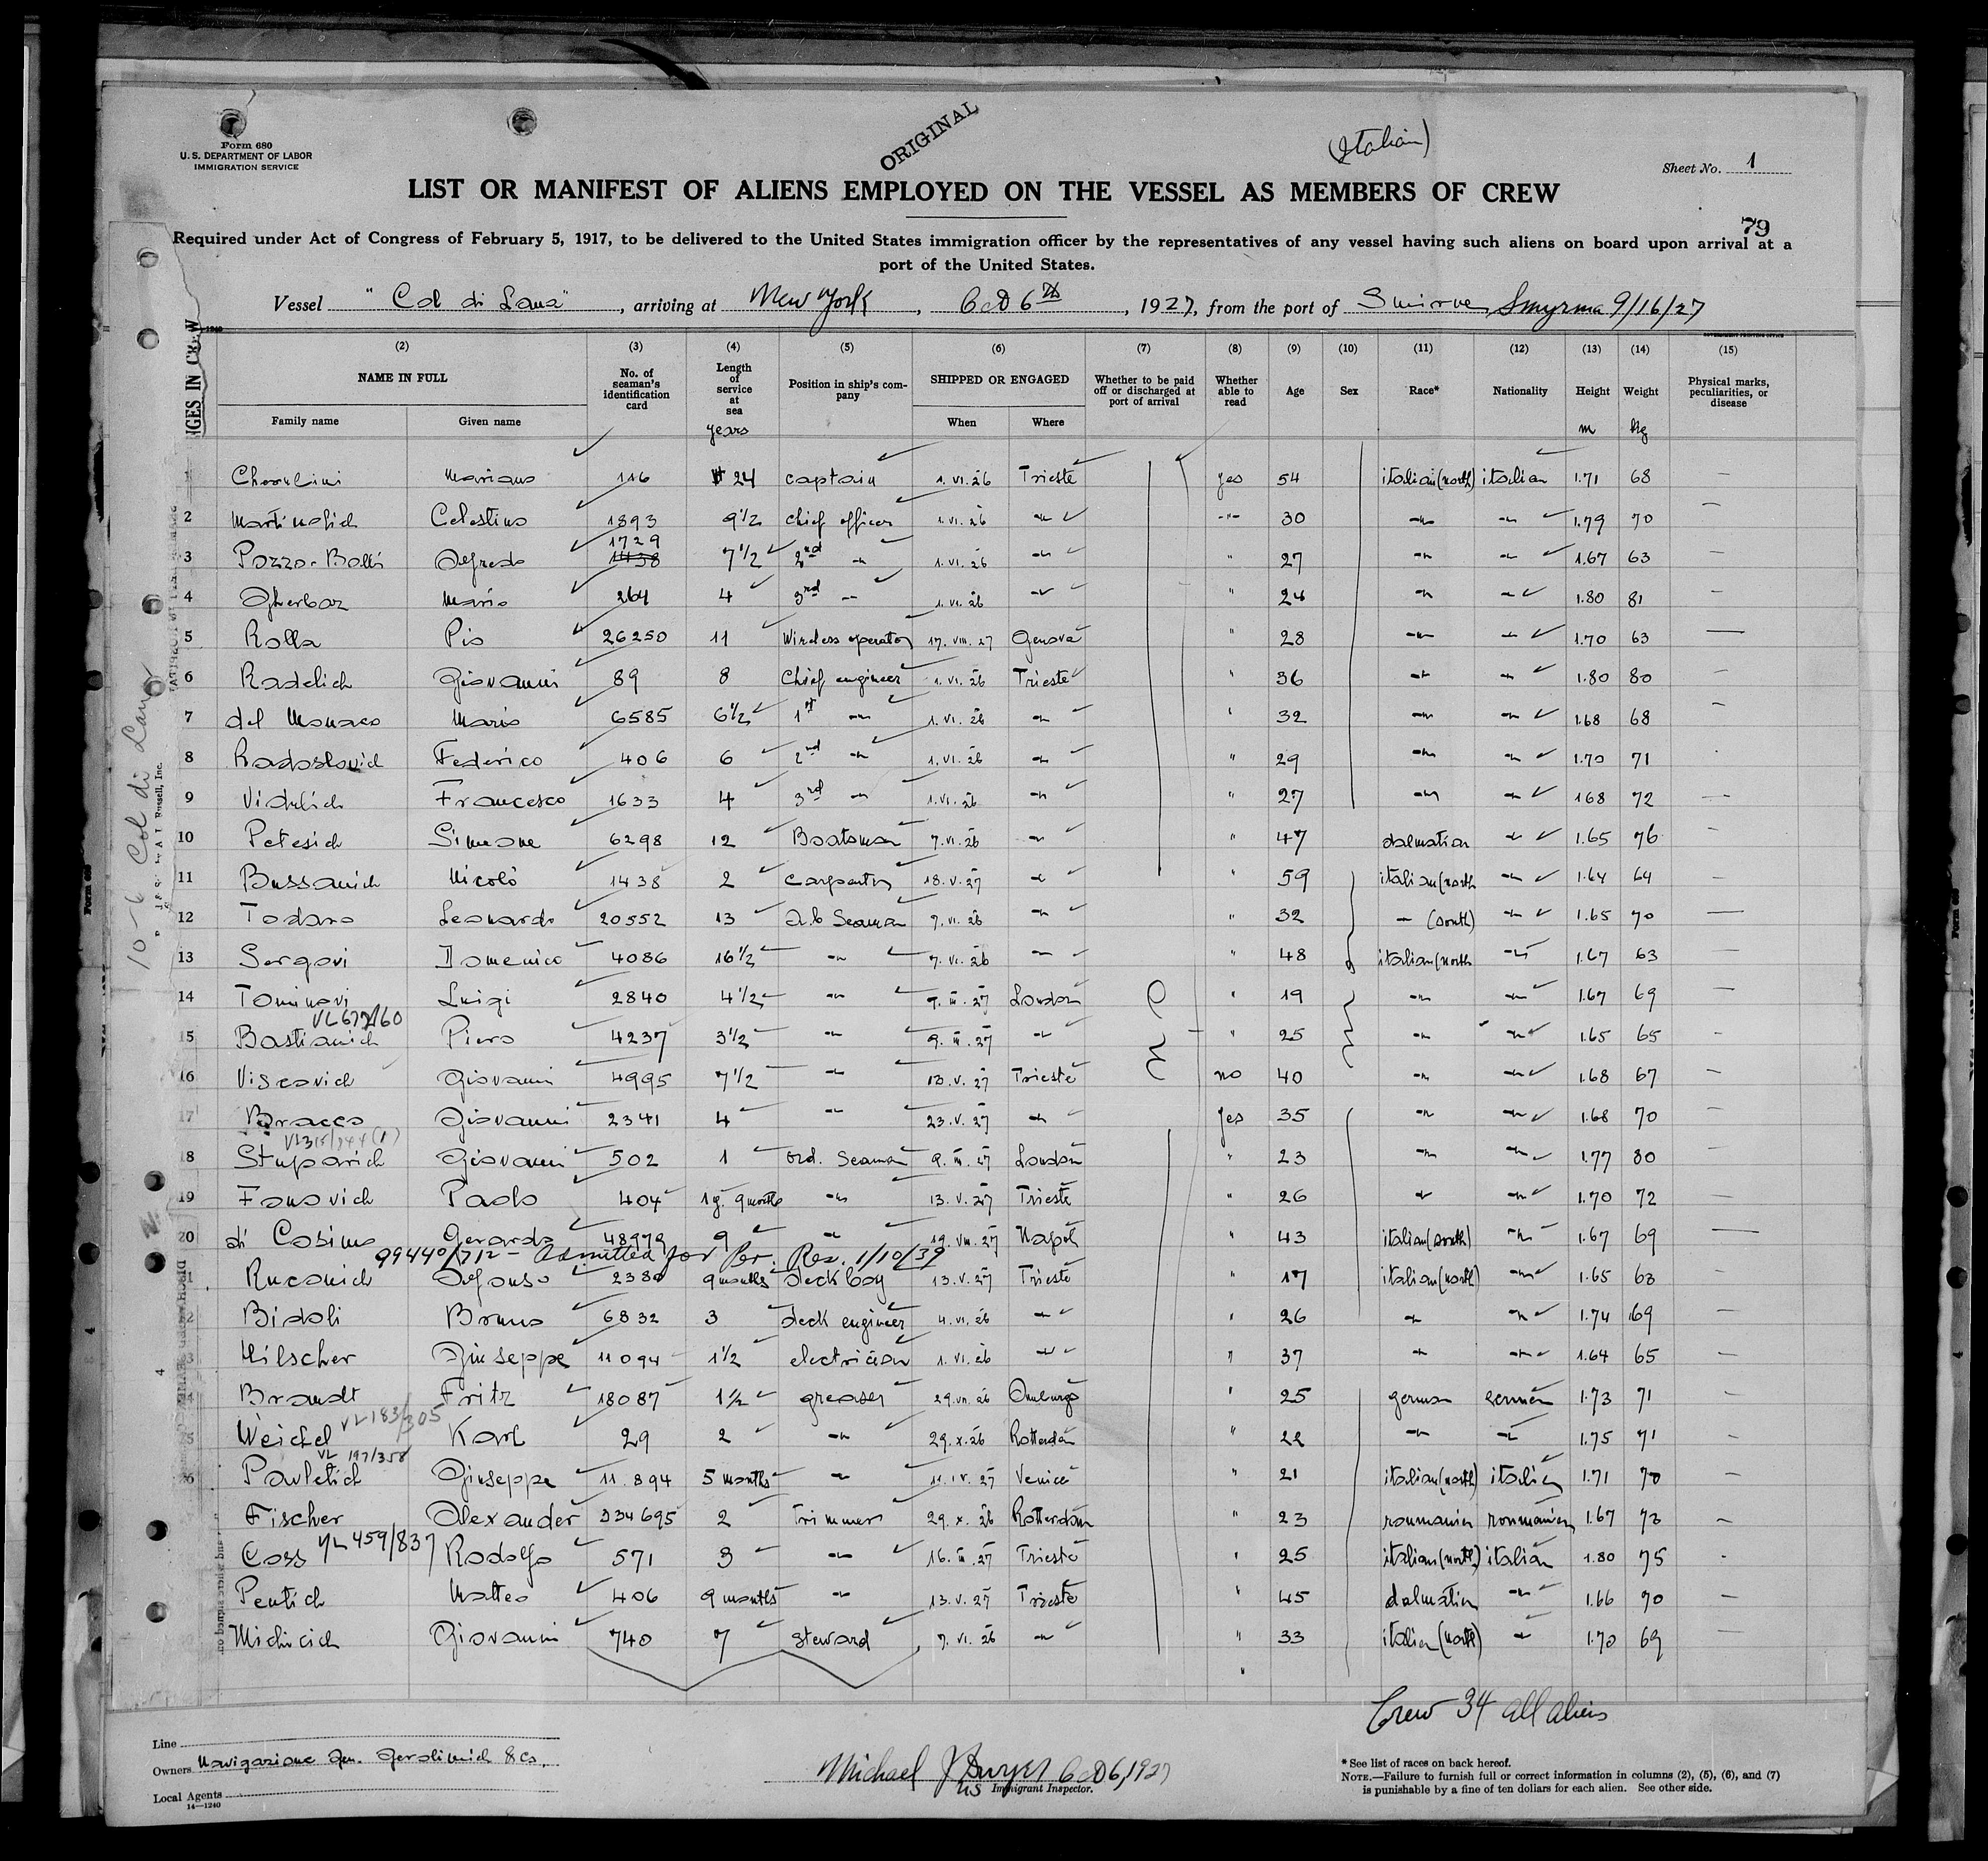 Form 680
U.S. DEPARTMENT OF LABOR
IMMIGRATION SERVICE
ORIGINAL
(Italian)
Sheet No. 1
LIST OR MANIFEST OF ALIENS EMPLOYED ON THE VESSEL AS MEMBERS OF CREW
79
Required under Act of Congress of February 5, 1917, to be delivered to the United States immigration officer by the representatives of any vessel having such aliens on board upon arrival at a
port of the United States.
Vessel "Col di Lana", arriving at New York, Oct 6th, 1927, from the port of Smirne, Smyrna 9/16/27
(2) (3) (4) (5) (6) (7) (8) (9) (10) (11) (12) (13) (14) (15)
NAME IN FULL No. of seaman's identification card Length of service at sea Position in ship's company SHIPPED OR ENGAGED Whether to be paid off or discharged at port of arrival Whether able to read Age Sex Race* Nationality Height Weight Physical marks, peculiarities, or disease
Family name Given name years When Where m kg
Mariano 116 24 captain 1.VI.26 Trieste yes 54 italian (north) italian 1.71 68 —
2 Martinolich Celestino 1893 9 1/2 chief officer 1.VI.26 -"- -"- 30 -"- -"- 1.79 70 —
1729
3 Pozzo-Balbi Alfredo 1438 7 1/2 2nd -"- 1.VI.26 -"- " 27 -"- -"- 1.67 63 —
4 Gherbaz Mario 264 4 3rd -"- 1.VI.26 -"- " 24 -"- -"- 1.80 81 —
5 Rolla Pio 26250 11 Wireless operator 17.VIII.27 Genova " 28 -"- -"- 1.70 63 —
6 Radelich Giovanni 89 8 Chief engineer 1.VI.26 Trieste " 36 -"- -"- 1.80 80 —
7 del Monaco Mario 6585 6 1/2 1st -"- 1.VI.26 -"- " 32 -"- -"- 1.68 68 —
8 Radoslovich Federico 406 6 2nd -"- 1.VI.26 -"- " 29 -"- -"- 1.70 71
9 Vidulich Francesco 1633 4 3rd -"- 1.VI.26 -"- " 27 -"- -"- 168 72 —
10 Petesich Simeone 6298 12 Boatsman 7.VI.26 -"- " 47 dalmatian -"- 1.65 76 —
11 Bussanich Nicolò 1438 2 carpenter 18.V.27 -"- " 59 italian (north -"- 1.64 64 —
12 Todaro Leonardo 20552 13 a.b Seaman 7.VI.26 -"- " 32 -"- (south) -"- 1.65 70 —
13 Domenico 4086 16 1/2 -"- 7.VI.26 -"- " 48 italian (north -"- 1.67 63 —
14 Luigi 2840 4 1/2 -"- 9.III.27 London " 19 -"- -"- 1.67 69 —
15 Bastianich Piero 4237 3 1/2 -"- 9.III.27 -"- " 25 -"- -"- 1.65 65 —
16 Viscovich Giovanni 4995 7 1/2 -"- 13.V.27 Trieste no 40 -"- -"- 1.68 67 —
17 Bracco Giovanni 2341 4 -"- 23.V.27 -"- yes 35 -"- -"- 1.68 70 —
18 Stuparich Giovanni 502 1 ord. Seaman 9.III.27 London " 23 -"- -"- 1.77 80 —
19 Fanovich Paolo 404 1y. 9 months -"- 13.V.27 Trieste " 26 -"- -"- 1.70 72 —
20 di Cosimo Gerardo 48979 9 -"- 19.VIII.27 Napoli " 43 italian (south) -"- 1.67 69 —
99440/712 - Admitted for Per. Res. 1/10/39
Rucconich Alfonso 2380 9 months deck boy 13.V.27 Trieste " 17 italian (north) -"- 1.65 63 —
Bidoli Bruno 6832 3 deck engineer 4.VI.26 -"- " 26 -"- -"- 1.74 69 —
Hilscher Giuseppe 11094 1 1/2 electrician 1.VI.26 -"- " 37 -"- -"- 1.64 65 —
Brandt Fritz 18087 1 1/2 greaser 29.VII.26 " 25 german german 1.73 71 —
VL 183/305
Weichel Karl 29 2 -"- 29.X.26 Rotterdam " 22 -"- -"- 1.75 71 —
VL 197/358
26 Pavletich Giuseppe 11.894 5 months -"- 11.IV.27 Venice " 21 italian (north) italian 1.71 70 —
Fischer Alexander 334695 2 Trimmer 29.X.26 Rotterdam " 23 roumanien roumanien 1.67 73 —
Coss VL 459/837 Rodolfo 571 3 -"- 16.III.27 Trieste " 25 italian (north) italian 1.80 75 -
Pentich Matteo 406 9 months -"- 13.V.27 Trieste " 45 dalmatian -"- 1.66 70 —
Michicich Giovanni 740 7 steward 7.VI.26 -"- " 33 italian (north) -"- 1.70 69 —
Crew 34 all aliens
Line
Owners Navigazione Gen. Gerolimich & Co.
Local Agents
14—1240
Michael J Dwyer Oct 6, 1927
US Immigrant Inspector.
* See list of races on back hereof.
NOTE.—Failure to furnish full or correct information in columns (2), (5), (6), and (7)
is punishable by a fine of ten dollars for each alien. See other side.
10-6 Col di Lana